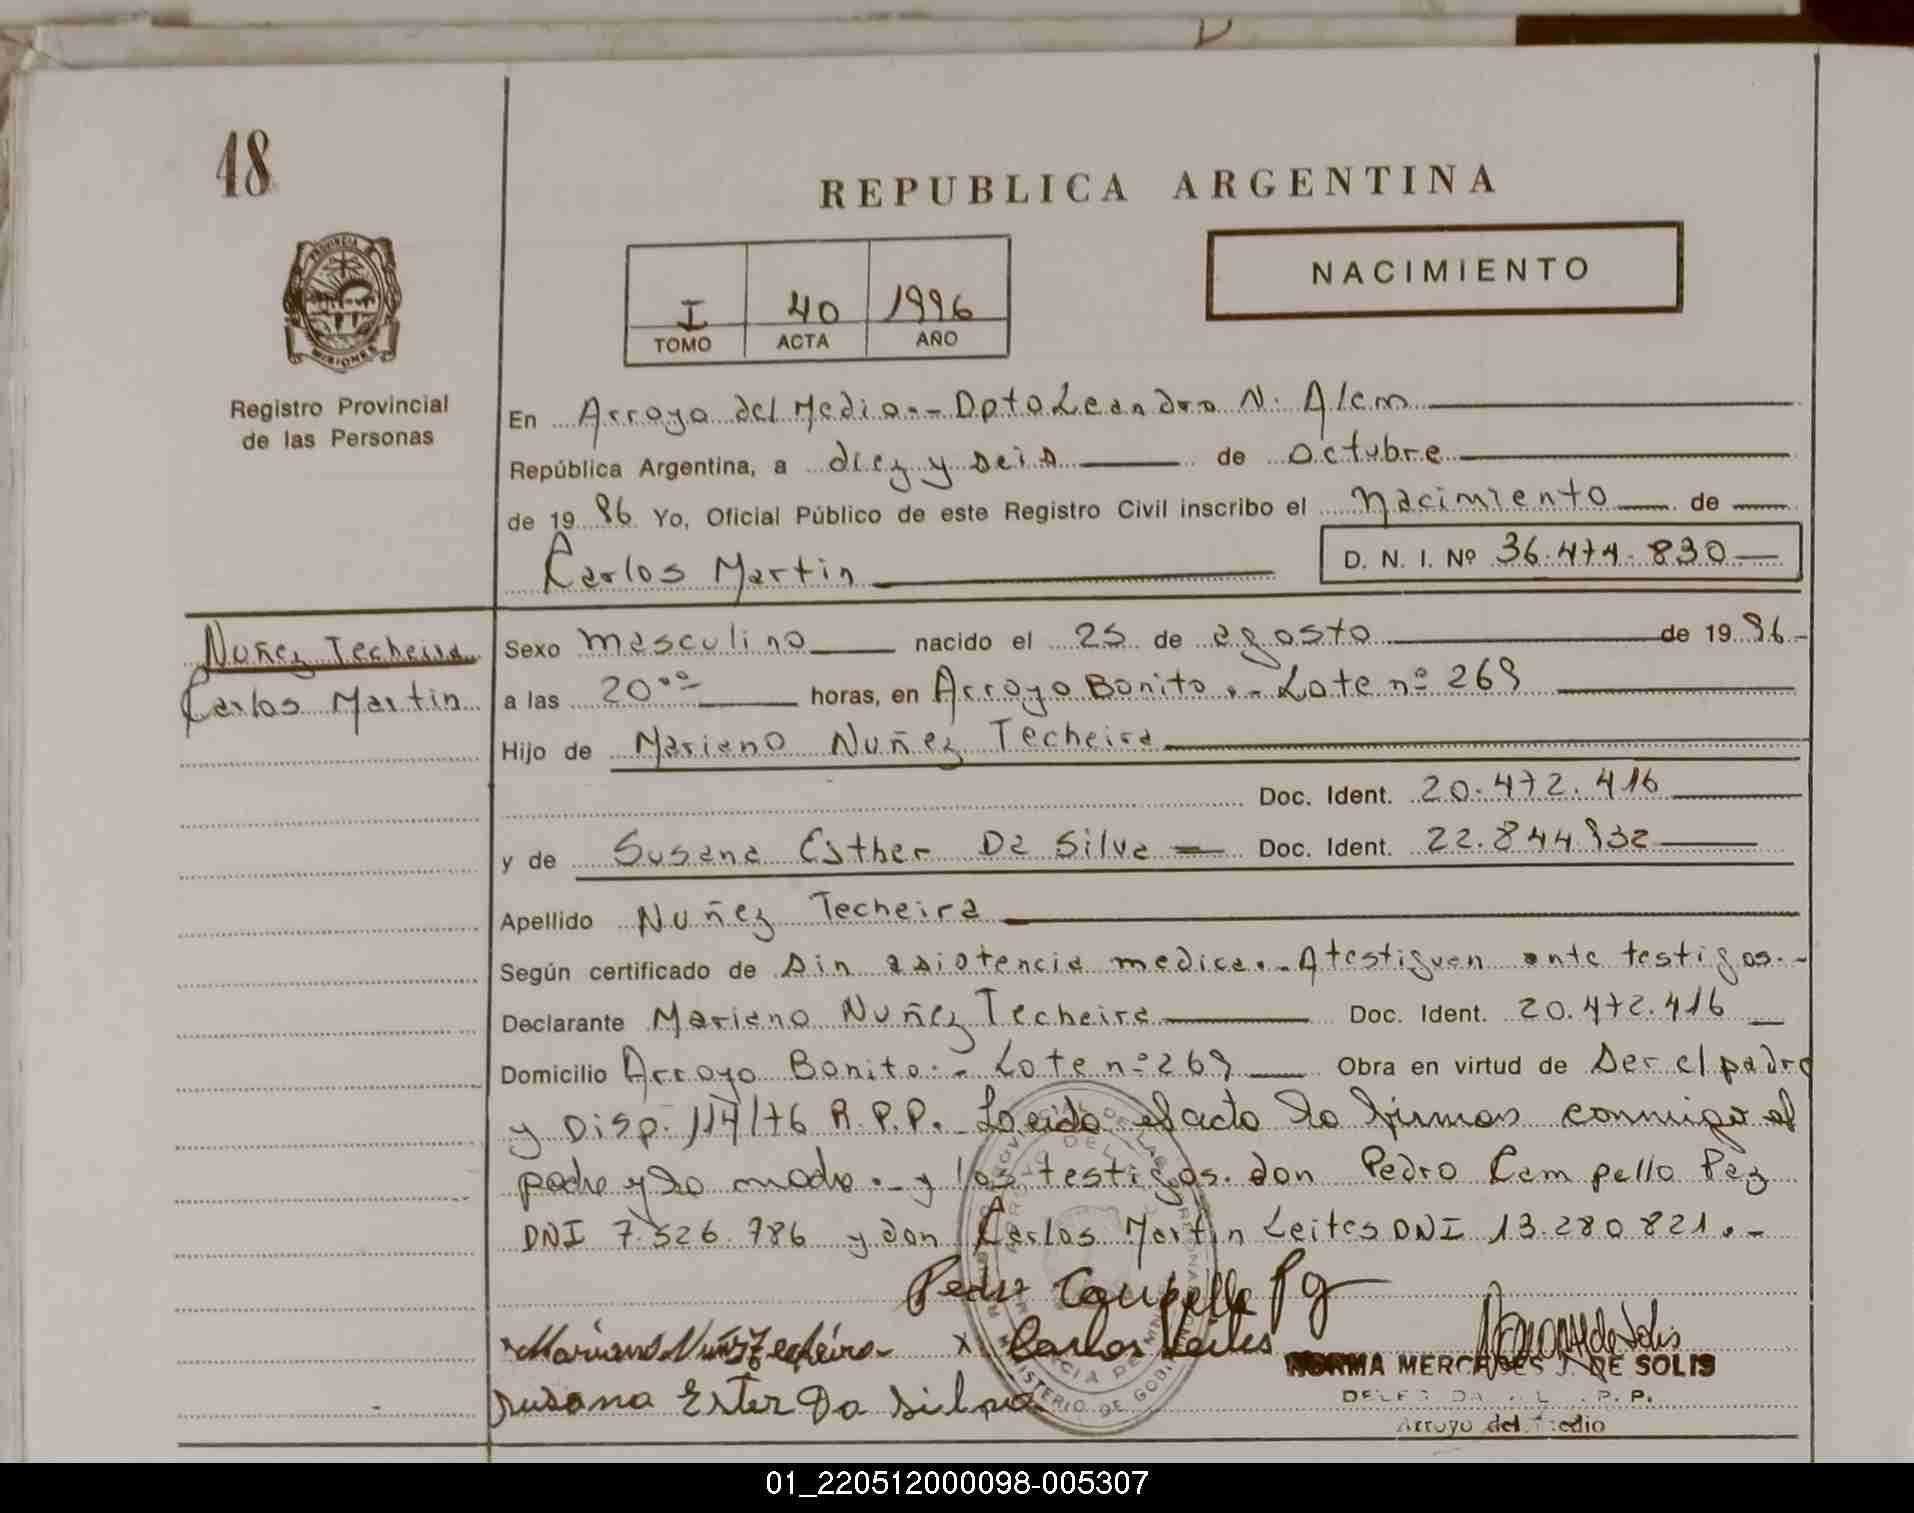 48
REPUBLICA ARGENTINA
PROVINCIA
MISIONES
Registro Provincial
de las Personas
I 40 1996
TOMO ACTA AÑO
NACIMIENTO
En Arroyo del Medio.- Dpto Leandro N. Alem
República Argentina, a diez y seis de octubre
de 1996 Yo, Oficial Público de este Registro Civil inscribo el nacimiento de
Carlos Martin D. N. I. Nº 36.474.830
Nuñez Techeira
Carlos Martin
Sexo masculino nacido el 25 de agosto de 1996
a las 20 ºº horas, en Arroyo Bonito.- Lote nº 269
Hijo de Mariano Nuñez Techeira
Doc. Ident. 20.472.416
y de Susana Esther Da Silva Doc. Ident. 22.844.932
Apellido Nuñez Techeira
Según certificado de sin asistencia medica.- Atestiguan ante testigos.-
Declarante Mariano Nuñez Techeira Doc. Ident. 20.472.416
Domicilio Arroyo Bonito.- Lote nº 269 Obra en virtud de ser el padre
y Disp. 114/76 R.P.P. Leida el acta la firman conmigo el
padre y la madre.- y los testigos. don Pedro Campello Paz
DNI 7.526.786 y don Carlos Martin Leites DNI 13.280.821.-
Pedro Campello Pz
Mariano Nuñez Techeira x Carlos Leites
NORMA MERCEDES J. DE SOLIS
Susana Ester Da Silva
R. P. P.
Arroyo del Medio
MINISTERIO DE GOBIERNO
01_220512000098-005307